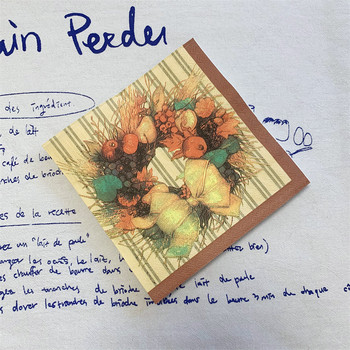 ain Perdu
des ingrédients
de lait
café de beu
anches de brioche
es de la recette
ez un "lait de poule"
anger les oeufs, le lait,
es chauffer de beurre dans
gez les tranches de brioche lait de poule
es dorer les tranches de brioche imbibées dans le beurre 2 min de chaque cô